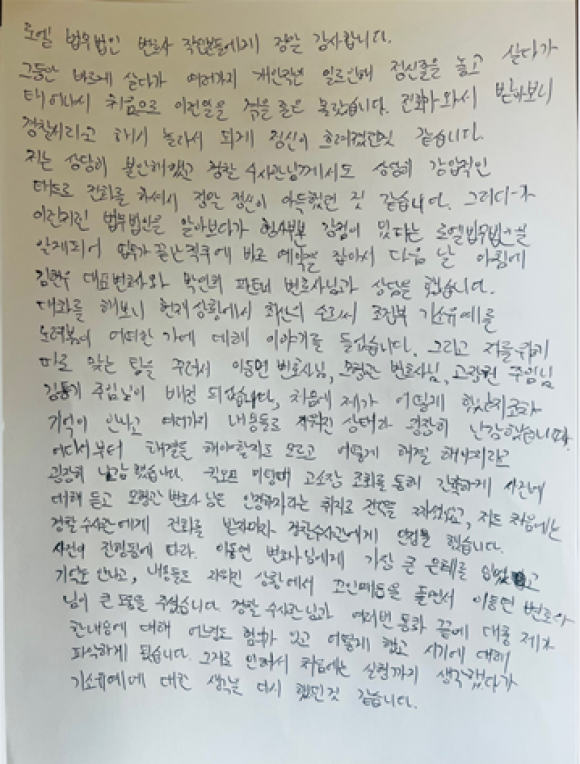 로엘 법무법인 변호사 직원분들에게 정말 감사합니다.
그동안 바르게 살다가 여러가지 개인적인 일로인해 정신줄을 놓고 살다가
태어나서 처음으로 이런일을 겪을 줄은 몰랐습니다. 전화와서 받아보니
경찰서라고 해서 놀라서 되게 정신이 흐려졌던것 같습니다.
저는 상당히 불안해했고 경찰 수사관님께서도 상당히 강압적인
태도로 전화를 하셔서 정말 정신이 아득했던 것 같습니다. 그러다가
이런저런 법무법인을 알아보다가 형사부분 강점이 있다는 로엘법무법인을
알게되어 업무가 끝난직후에 바로 예약을 잡아서 다음 날 아침에
대표변호사와 파트너 변호사님과 상담을 했습니다.
대화를 해보니 현재상황에서 최선의 수로써 조건부 기소유예를
노려보는게 어떠한 가에 대해 이야기를 들었습니다. 그리고 저를위해
따로 맞는 팀을 꾸려서 이동연 변호사님, 변호사님, 주임님
주임님이 배정 되었습니다. 처음에 제가 어떻게 했었는지조차
기억이 안나고 여러가지 내용들도 지워진 상태라 굉장히 난감했습니다.
어디서부터 해결을 해야할지도 모르고 어떻게 해결 해나가지라고
굉장히 난감했습니다. 킥오프 미팅때 고소장 조회를 통해 간략하게 사건에
대해 듣고 변호사님은 인정하자라는 취지로 전략을 주셨고, 저도 처음에는
경찰수사관에게 전화를 받자마자 경찰수사관에게 인정을 했습니다.
사건이 진행됨에 따라. 이동연 변호사님에게 가장 큰 은혜를 입었고
기억도 안나고, 내용들도 지워진 상황에서 이동연 변호사
님이 큰 도움을 주셨습니다. 경찰 수사관님과 여러번 통화 끝에 대충 제가
한내용에 대해 어느정도 혐의가 있고 어떻게 했고 시기에 대해
파악하게 됐습니다. 그거로 인해서 처음에는 실형까지 생각했다가
기소유예에 대한 생각을 다시 했던것 같습니다.